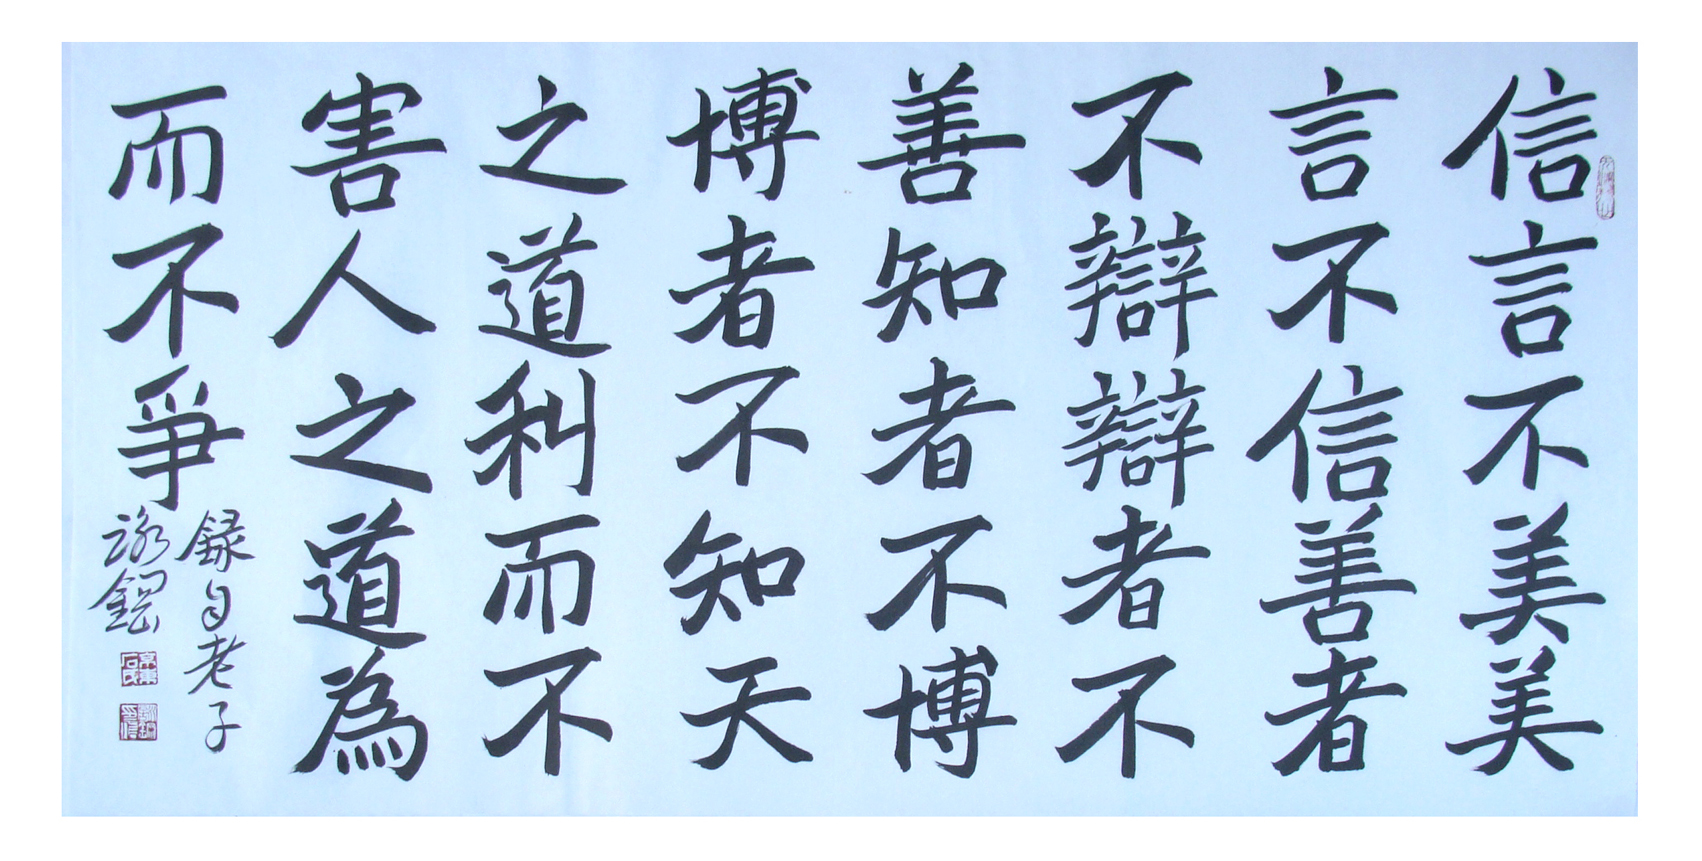 信言不美美
言不信善者
不辯辯者不
善知者不博
博者不知天
之道利而不
害人之道為
而不爭
録自老子
詠鋼